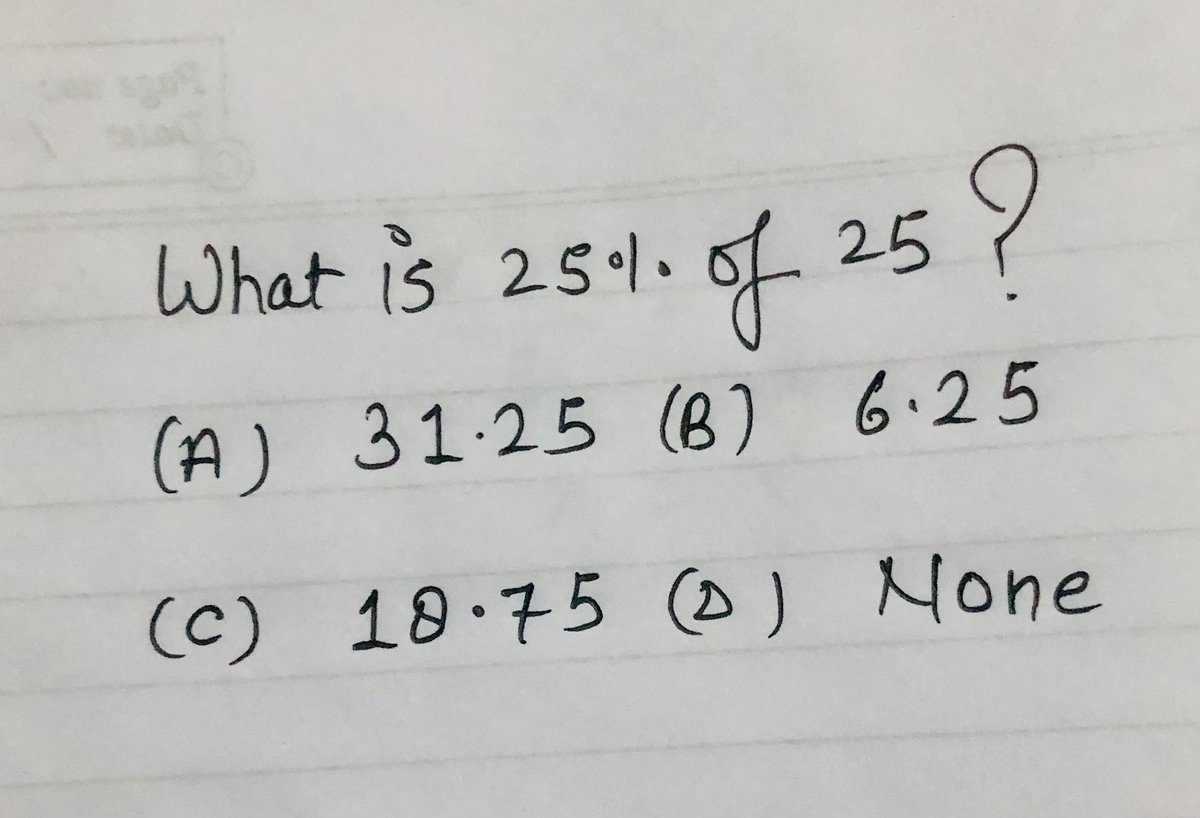 What is 25% of 25 ?
(A) 31.25 (B) 6.25
(C) 18.75 (D) None